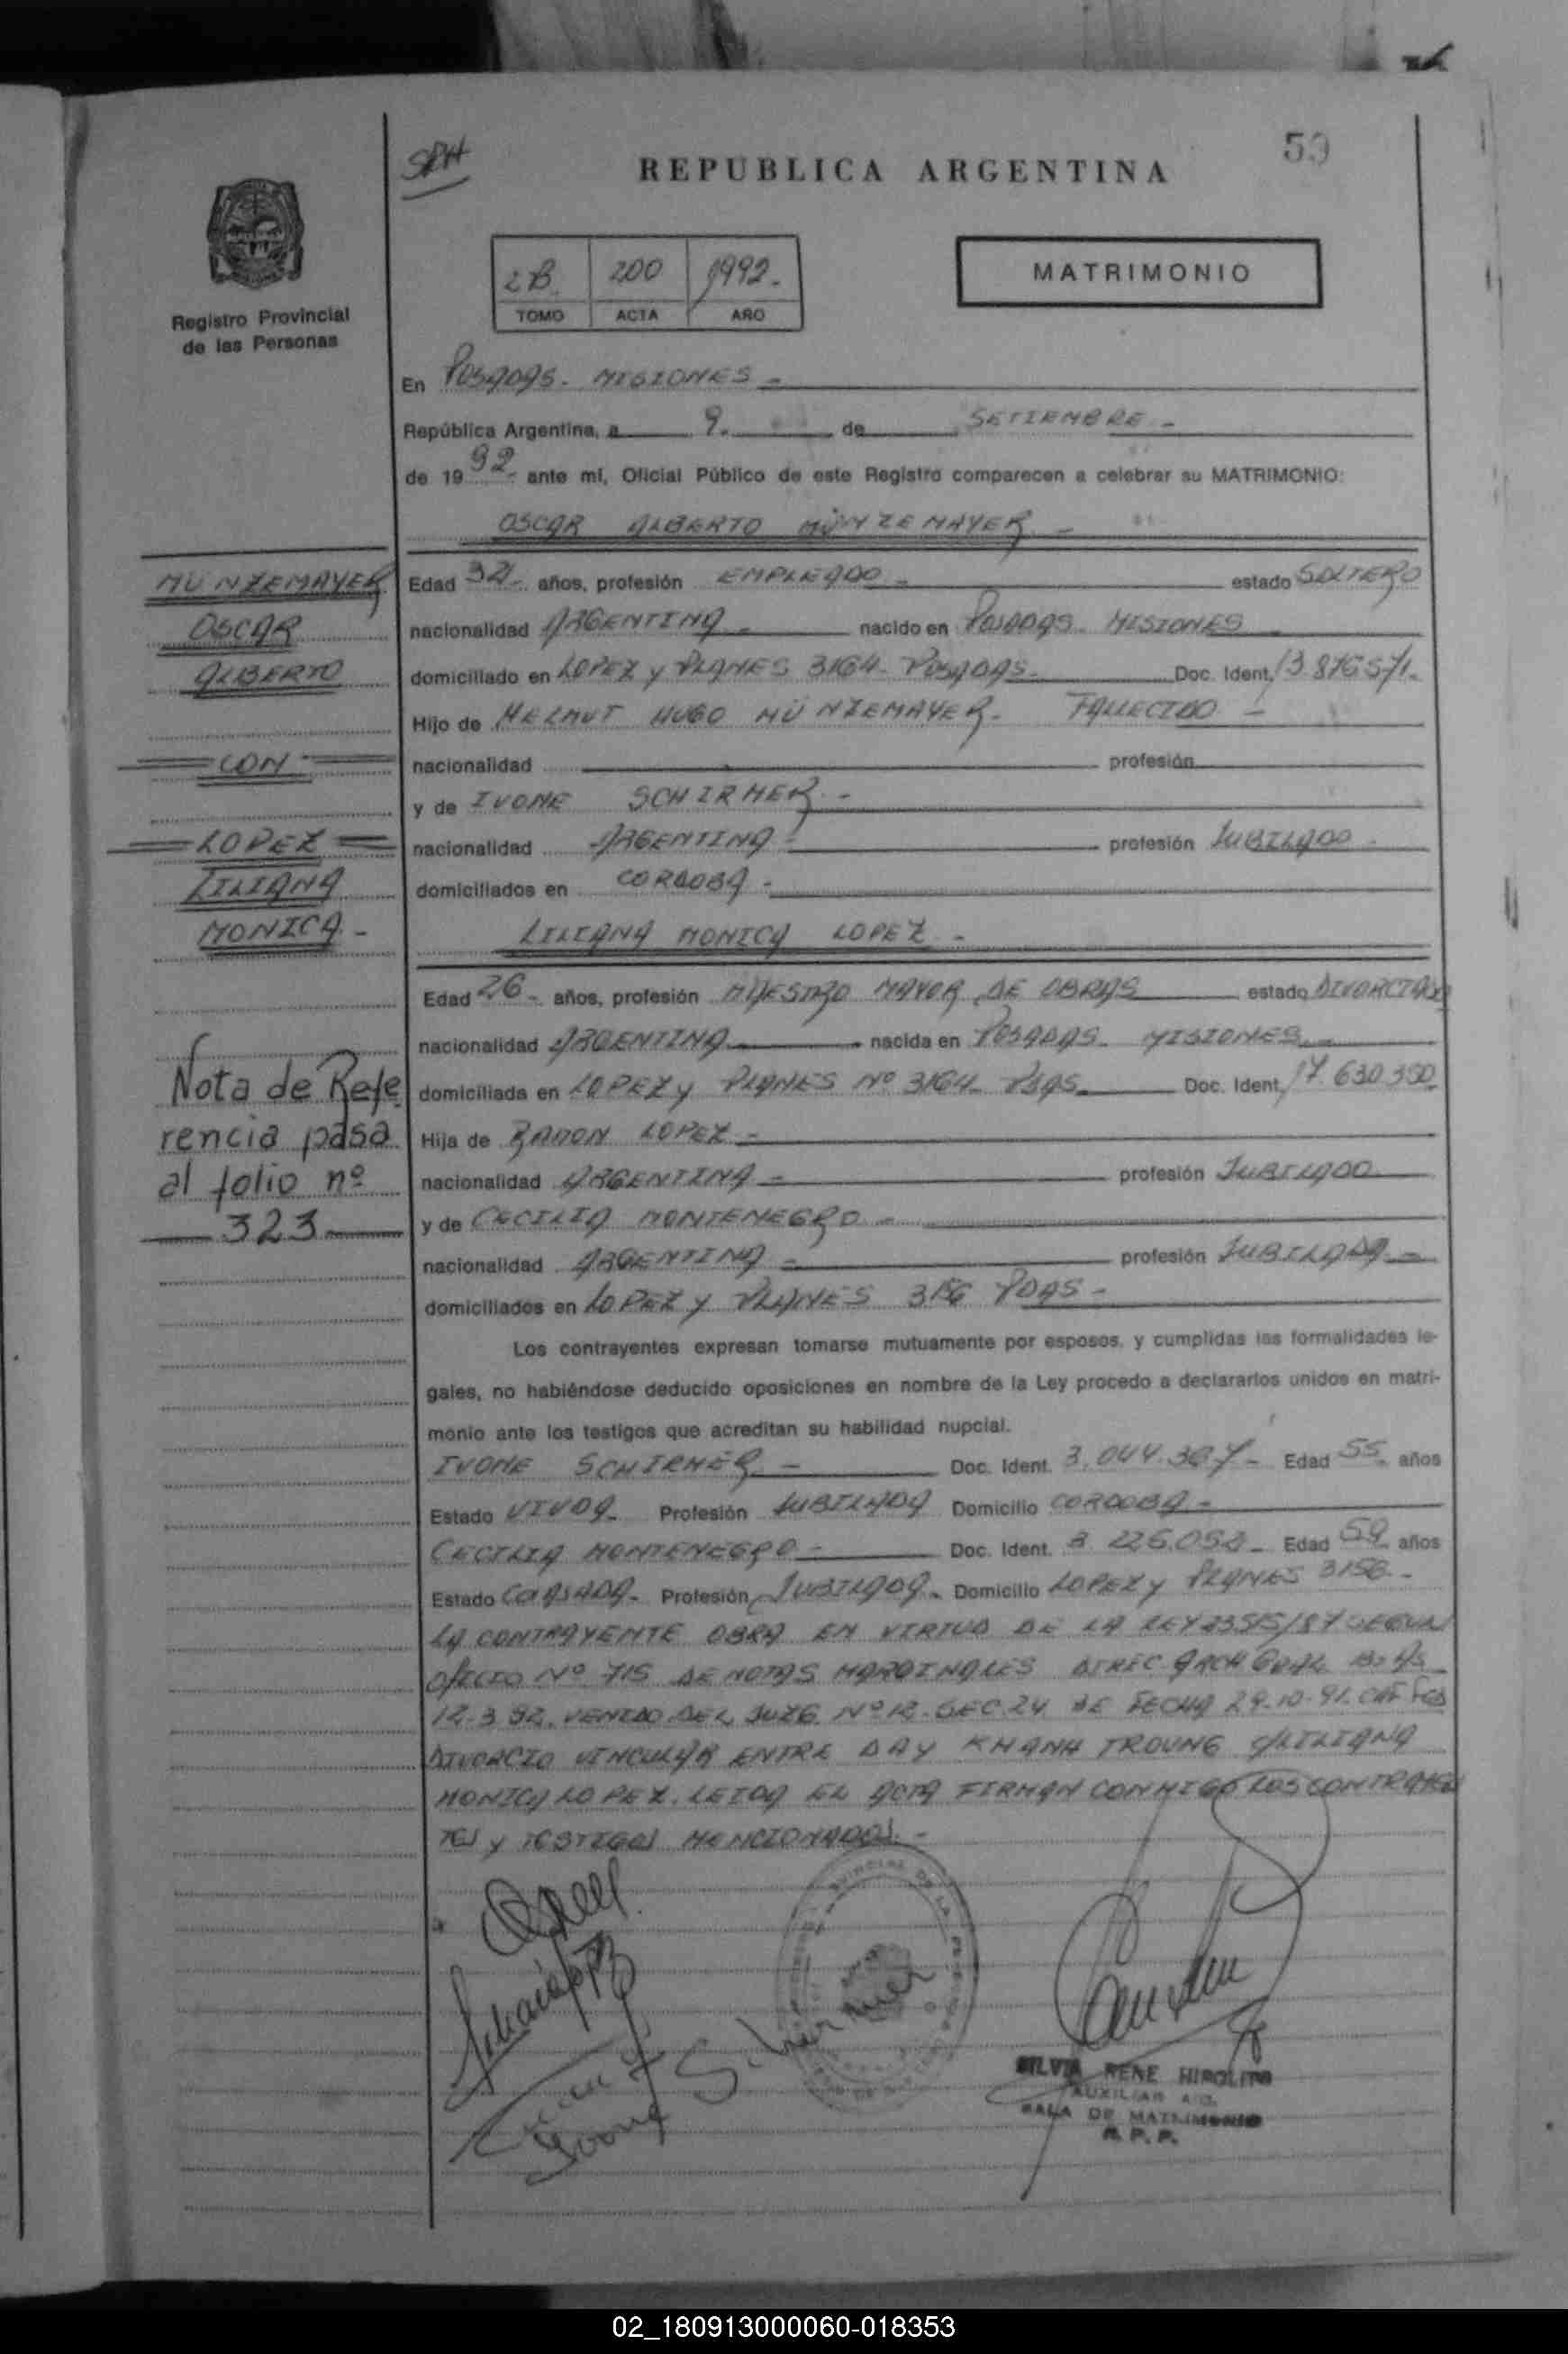 59
SRH
REPUBLICA ARGENTINA
2B 200 1992.
TOMO ACTA AÑO
MATRIMONIO
Registro Provincial
de las Personas
En POSADAS - MISIONES -
República Argentina, a 9. de SETIEMBRE -
de 1992 ante mí, Oficial Público de este Registro comparecen a celebrar su MATRIMONIO:
OSCAR ALBERTO MÜNZEMAYER -
MUNZEMAYER
OSCAR
ALBERTO
CON
LOPEZ
LILIANA
MONICA -
Edad 32 - años, profesión EMPLEADO - estado SOLTERO
nacionalidad ARGENTINA - nacido en POSADAS - MISIONES
domiciliado en LOPEZ y PLANES 3164 - POSADAS - Doc. Ident. 13.876.571.
Hijo de HELMUT HUGO MÜNZEMAYER - FALLECIDO -
nacionalidad profesión
y de IVONE SCHIRMER -
nacionalidad ARGENTINA - profesión JUBILADO -
domiciliados en CORDOBA -
LILIANA MONICA LOPEZ -
Edad 26 - años, profesión MAESTRO MAYOR DE OBRAS estado DIVORCIADA
nacionalidad ARGENTINA nacida en POSADAS - MISIONES -
domiciliada en LOPEZ y PLANES Nº 3164 - PSAS Doc. Ident. 17.630.350
Hija de RAMON LOPEZ -
nacionalidad ARGENTINA - profesión JUBILADO
y de CECILIA MONTENEGRO -
nacionalidad ARGENTINA - profesión JUBILADA -
domiciliados en LOPEZ y PLANES 3156 PDAS -
Nota de Refe
rencia pasa
al folio nº
323
Los contrayentes expresan tomarse mutuamente por esposos, y cumplidas las formalidades le-
gales, no habiéndose deducido oposiciones en nombre de la Ley procedo a declararlos unidos en matri-
monio ante los testigos que acreditan su habilidad nupcial.
IVONE SCHIRMER - Doc. Ident. 3.044.367 - Edad 55 años
Estado VIUDA - Profesión JUBILADA Domicilio CORDOBA -
CECILIA MONTENEGRO - Doc. Ident. 3.226.052 - Edad 59 años
Estado CASADA - Profesión JUBILADA - Domicilio LOPEZ y PLANES 3156 -
LA CONTRAYENTE OBRA EN VIRTUD DE LA LEY 23515/87 SEGUN
OFICIO Nº 715 DE NOTAS MARGINALES DIREC. ARCH GRAL Bs As
12-3-92. VENIDO DEL JUZG. Nº 12 - SEC. 24 DE FECHA 29-10-91. CAP FED
DIVORCIO VINCULAR ENTRE DAY KHANH TROUNG C/LILIANA
MONICA LOPEZ. LEIDA EL ACTA FIRMAN CONMIGO LOS CONTRAYEN
TES y TESTIGOS MENCIONADOS. -
Ivone Schirmer
SILVIA RENE HIPOLITO
AUXILIAR
SALA DE MATRIMONIO
R. P. P.
02_180913000060-018353